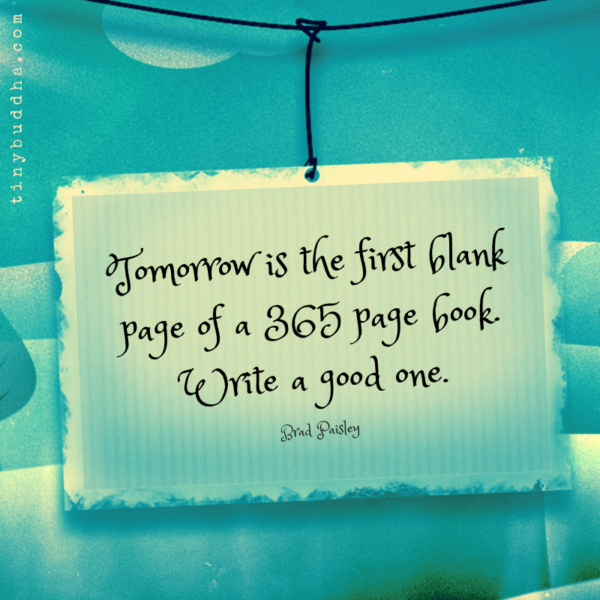 tinybuddha.com
Tomorrow is the first blank
page of a 365 page book.
Write a good one.
Brad Paisley